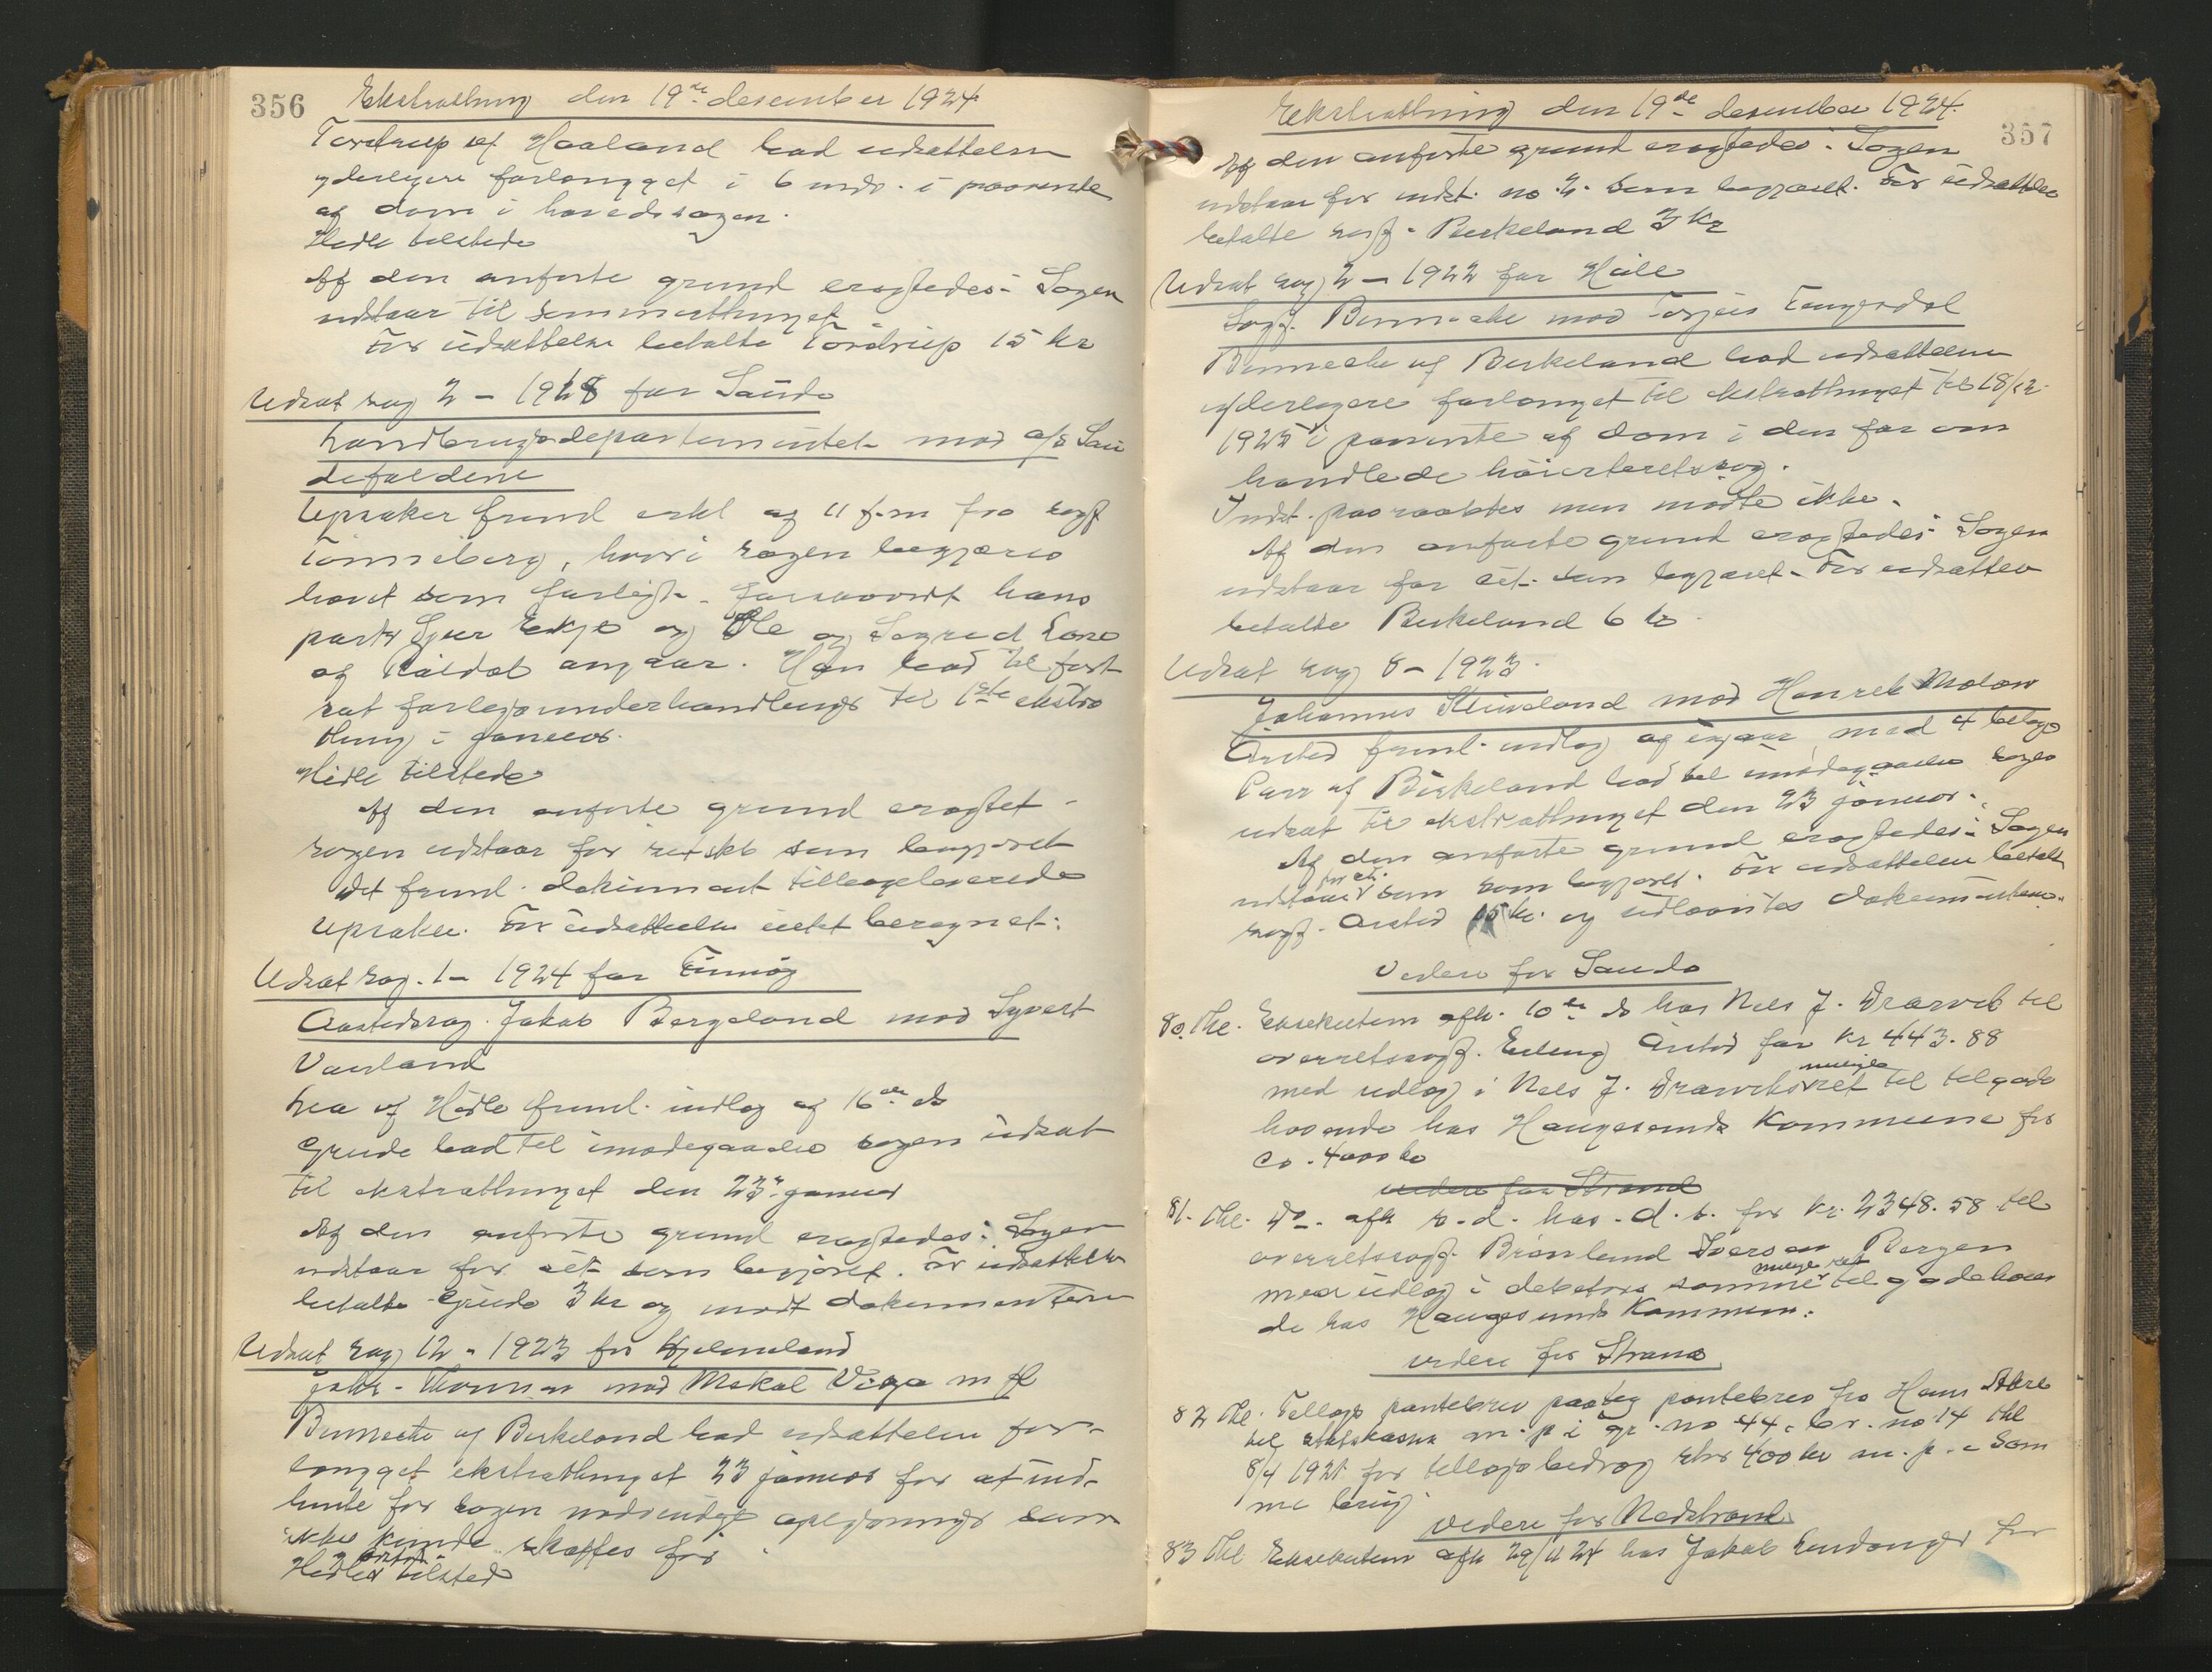 356
Ekstrathing den 19de desember 1924
Tordrup af Haaland bad udsættelsen
yderligere forlænget i 6 mdr. i paavente
af dom i hovedsagen.
Hidle tilstede
Af den anførte grund eragtedes: Sagen
udstaar til sommerthinget
For udsættelse betalte Tordrup 15 kr
Udsat sag 2 - 1918 for Sauda
Landbrugsdepartementet mod a/s Sau
defaldene
Opsaker freml erkl af 11 f.m fra sagf
Tønnesberg, hvori sagen begjæres
hævet som forligt - forsaavidt hans
parter og Ole og Sigrid Lone
af Røldal angaar. Han bad til fort
sat forligsunderhandlings til 1ste ekstra
thing i januar.
Hidle tilstede
Af den anførte grund eragtet -
sagen udstaar for retskb som begjæret
Det freml. dokument tilbageleverede
Opsaker. For udsættelse intet beregnet.
Udsat sag. 1 - 1924 for Finnøy
Aastedssag. Jakob Bergeland mod Syvert
Vauland
Lea af Hidle freml. indlæg af 16de ds
Grude bad til imødegaaelse sagen udsat
til ekstrathinget den 23de januar
Af den anførte grund eragtedes: Sagen
udstaar for ret som begjæret. For udsættelse
betalte Grude 3 kr og modt dokumenterne
Udsat sag 12 - 1923 for Hjelmeland
Johs. Thomsen mod Mikal Viga m fl
Benneche af Birkeland bad udsættelsen for-
længet ekstrathinget 23 januar for at ind-
hente for sagen nødvendige oplysninger som
ikke kunde skaffes før
Hidle tilstede
Ekstrathing den 19de desember 1924.
357
Af den anførte grund eragtedes: Sagen
udstaar for indst. no. 2. som begjæret. For udsættelse
betalte sagf. Birkeland 3 kr
Udsat sag 2 - 1922 for Hille
Sagf. Benneche mod Torjus
Benneche af Birkeland bad udsættelsen
yderligere forlænget til ekstrathinget til 18/12
1925 i paavente af dom i den før om
handlede høiesteretssag.
Indst. paaraabtes men mødte ikke.
Af den anførte grund eragtedes: Sagen
udstaar for ret som begjæret. For udsættelse
betalte Birkeland 6 kr.
Udsat sag 8 - 1923.
Johannes mod Henrik
Årstad freml. indlæg af igaar, med 4 bilage
af Birkeland bad til imødegaaelse sagen
udsat til ekstrathinget den 23 januar.
Af den anførte grund eragtedes: Sagen
udstaar for ret. som begjæret. For udsættelsen betalt
sagf. Årstad 15 kr. og udlaantes dokumenterne.
Videre for Sauda
80. Thl. Eksekution afh. 10de ds hos Nels J. til
overretssagf. Erling Årstad for kr 443.88
med udlæg i Nels J. mulige ret til tilgode
havende hos Haugesunds Kommune for
ca. 4000 kr
videre for Strand
81. Thl. Do. afh s.d. hos d.s. for kr. 2348.58 til
overretssagf. Brønlund Iversen Bergen
med udlæg i debitors samme mulige ret tilgodehaven
de hos Haugesunds Kommune.
videre for Strand
82 Thl. Tillægs pantebrev paateg pantebrev fra Hans
til statskassen m. p i gr. no 44, br. no 14 thl
8/4 1921 for tillægsbedrag stor 400 kr m. p. i sam
me brug.
videre for Nedstrand
83 Thl Eksekution afh 29/11 24 hos Jakob for